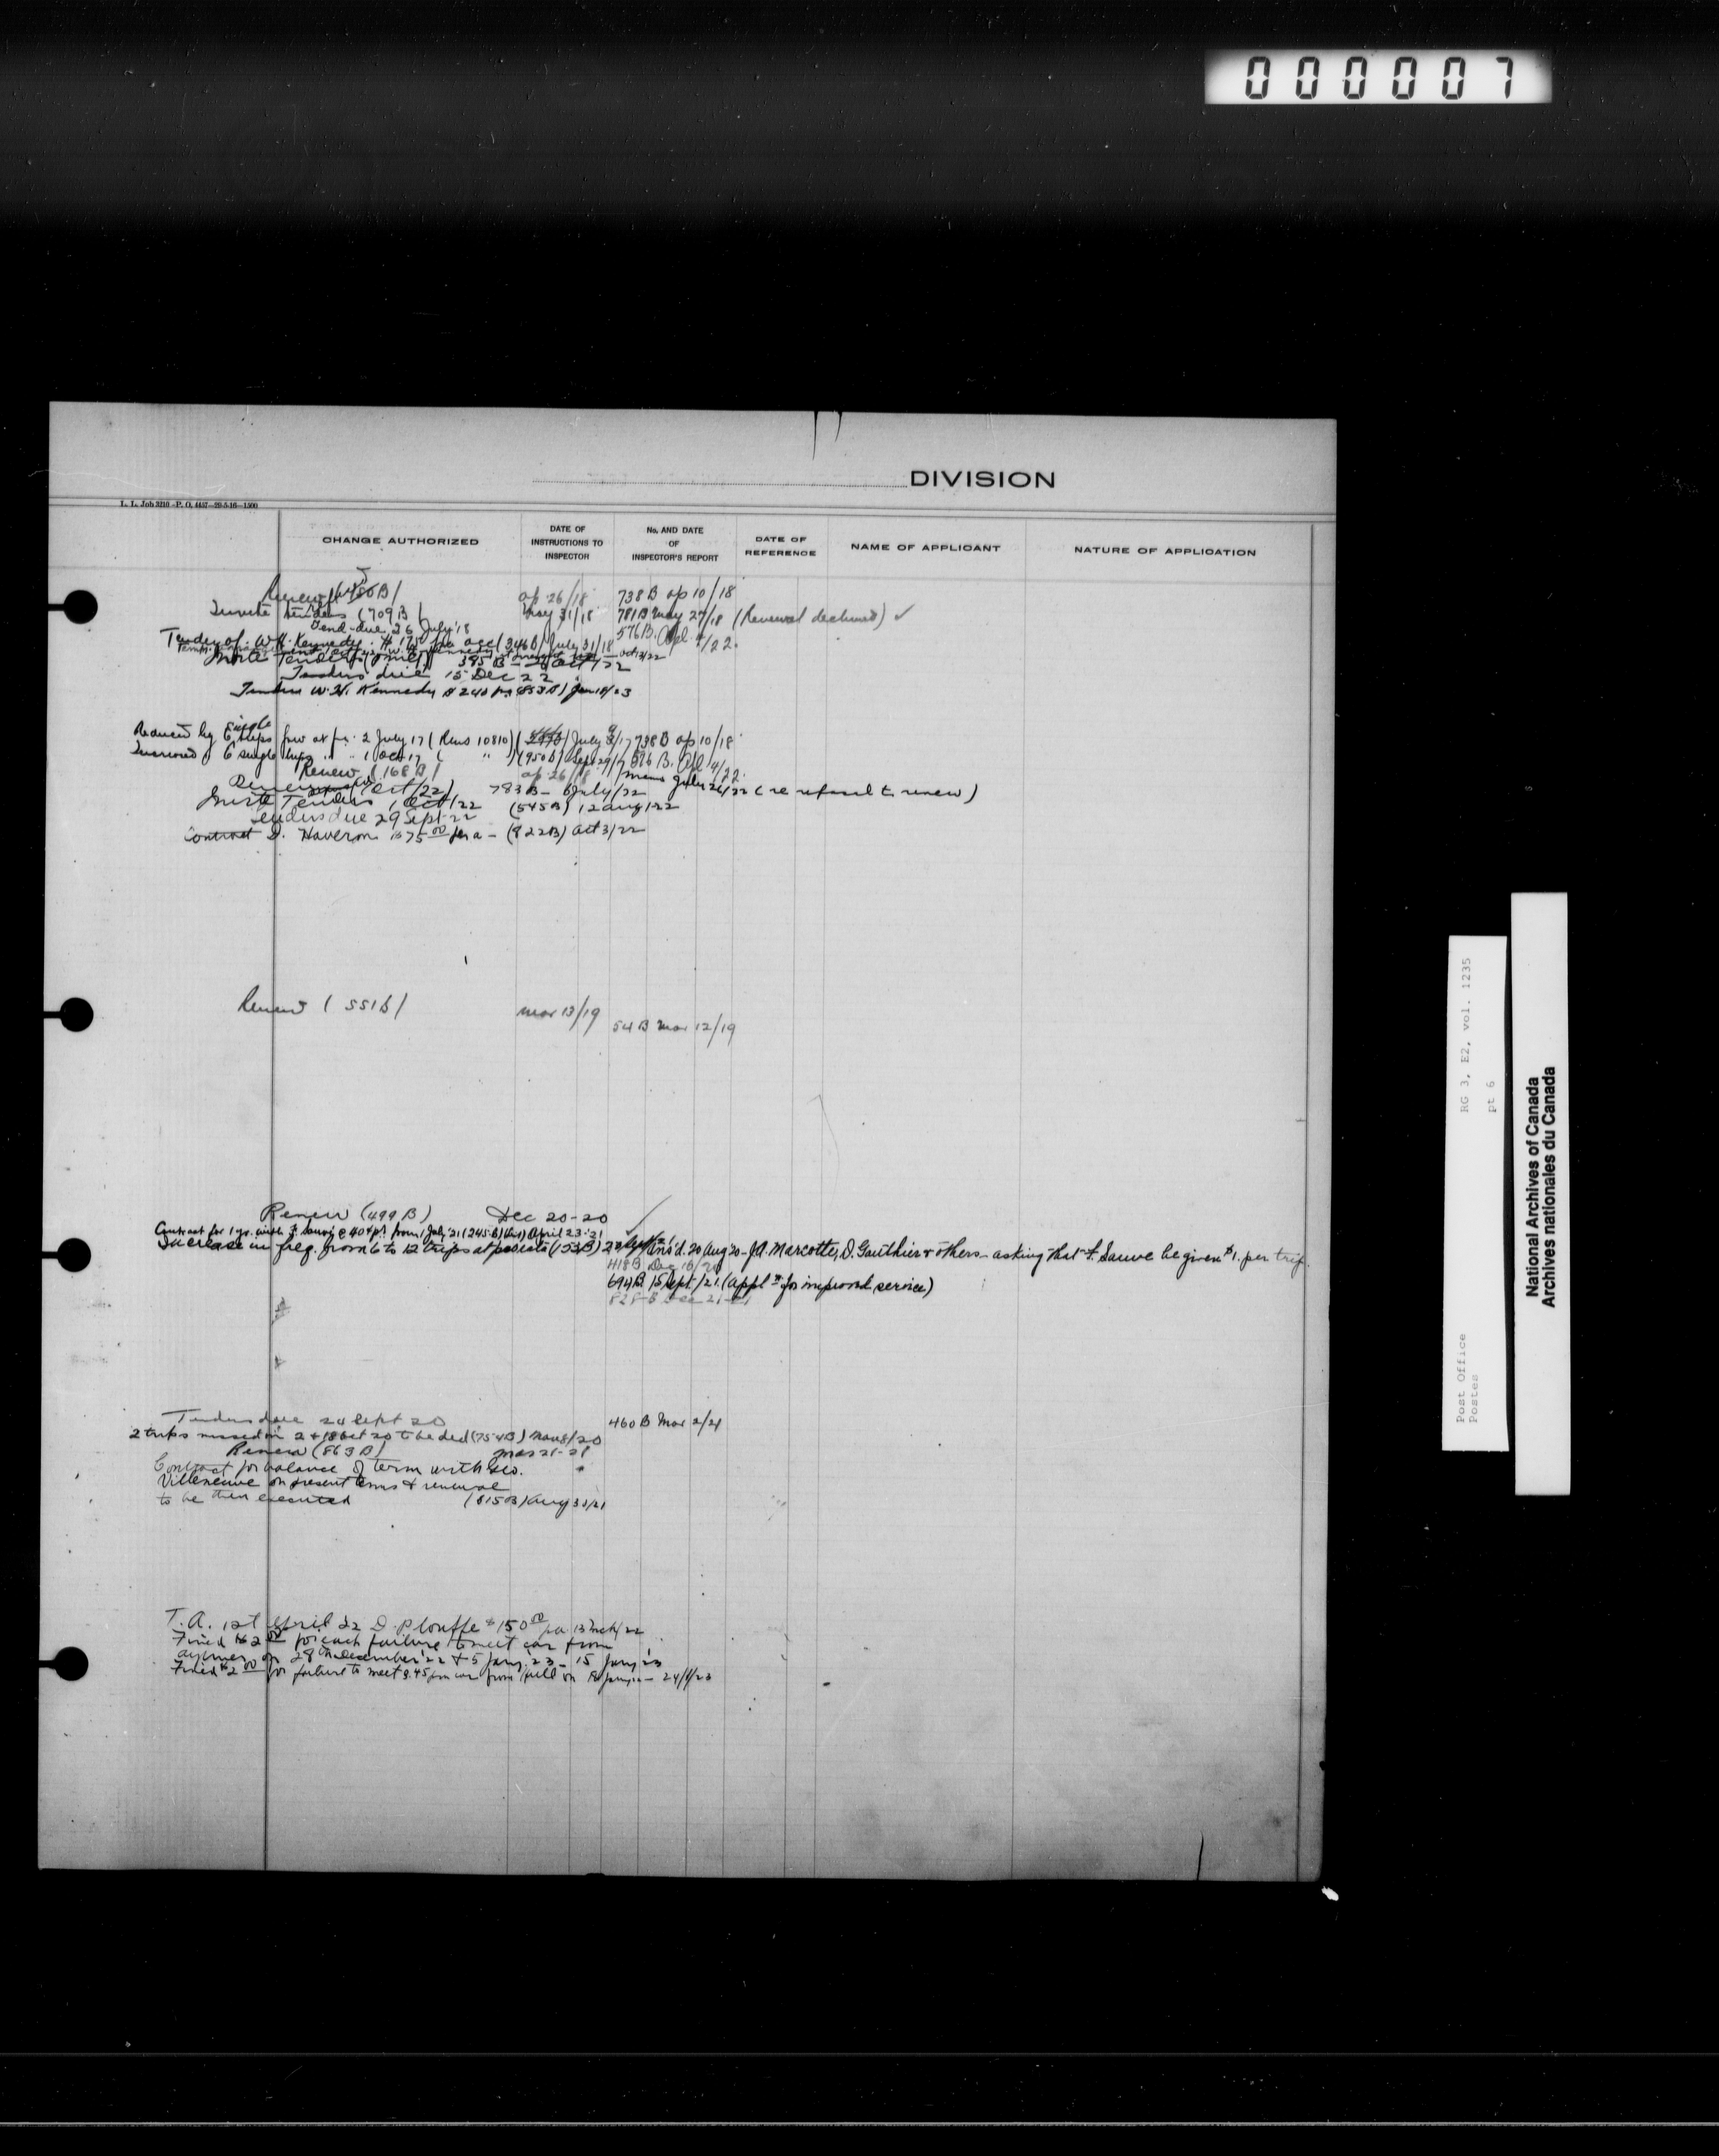 000007
DIVISION
L. L. Job 3210—P. O. 4457—29-5-16—1500
CHANGE AUTHORIZED
DATE OF INSTRUCTIONS TO INSPECTOR
No. AND DATE OF INSPECTOR'S REPORT
DATE OF REFERENCE
NAME OF APPLICANT
NATURE OF APPLICATION
Renew ap 26/18 738 B ap 10/18
Invite tenders (709 B) May 31/18 781 B May 27/18 (Renewal declined) ✓
Tend. due 26 July '18 576 B. Apl 4/22.
Tender of W.H. Kennedy (346 B) July 31/18
Invite Tenders 395 B Oct/22
Tenders due 15 Dec 22
W.H. Kennedy $240 Jan 18/23
Reduced by 6 single trips 2 July 17 (Rms 10810) July 9/17 738 B ap 10/18
Increased 6 single trips " " 1 Oct 17 ( " ) (950 B) Sept 29/17 576 B. Apl 4/22.
Renew (168 B) ap. 26/18 July 26/22 (re refusal to renew)
(Oct/22) 783 B - 6 July/22
Invite Tenders, Oct/22 (545 B) 12 Aug/22
Tenders due 29 Sept-22
Contract D. Haveron 75.00 per a - (822 B) Oct 3/22
Renew (551 B) Mar 13/19 54 B Mar 12/19
Renew (499 B) Dec 20-20
Contract for 1 yr. with F. Sauvé @ 40¢ p.t. from 1 July '21 (245 B) April 23-21
Increase in freq. from 6 to 12 trips at pro rata (153 B) 20 Aug '20 - J.A. Marcotte, D. Gauthier & others - asking that F. Sauve be given $1. per trip.
418 B Dec 16/20
694 B 15 Sept/21. (appln for improved service)
828-B Dec 21-21
Tenders due 24 Sept 20 460 B Mar 2/21
2 trips missed on 2 & 18 Oct 20 to be ded (754 B) Nov 8/20
Renew (863 B) Mar 21-21
Contract for balance of term with Geo.
Villeneuve on present terms & renewal
to be then executed (815 B) Aug 30/21
T. A. 1st April 22 D. Plouffe $150.00 pa 13 Mch/22
Fined $2.00 for each failure to meet car from
Aylmer on 28th December '22 & 5 Jany. '23 - 15 Jany '23
Fined $2.00 for failure to meet 8.45 pm car from Hull on - 24/1/23
Post Office
Postes
RG 3, E2, vol. 1235
pt 6
National Archives of Canada
Archives nationales du Canada